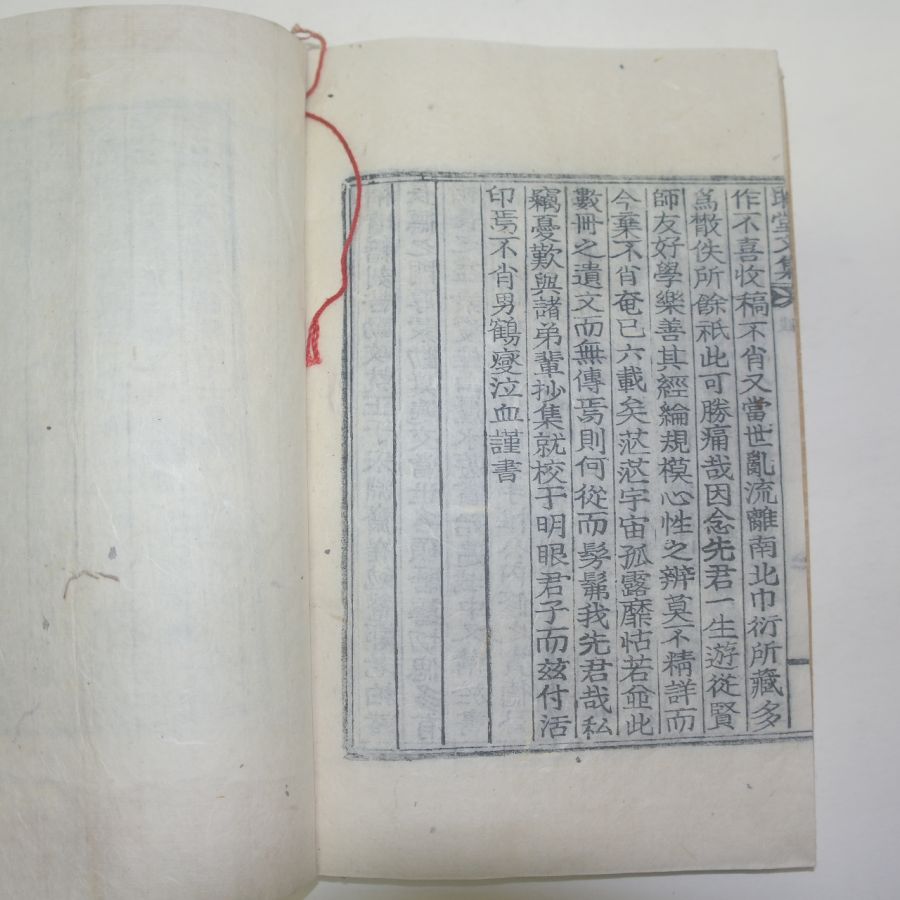 堂文集
作不喜收稿不肖又當世亂流離南北巾衍所藏多
爲散佚所餘祇此可勝痛哉因念先君一生遊從賢
師友好學樂善其經綸規模心性之辨莫不精詳而
今棄不肖奄已六載矣茫茫宇宙孤露靡怙若并此
數冊之遺文而無傳焉則何從而髣髴我先君哉私
竊憂歎與諸弟輩抄集就校于明眼君子而玆付活
印焉不肖男鶴燮泣血謹書